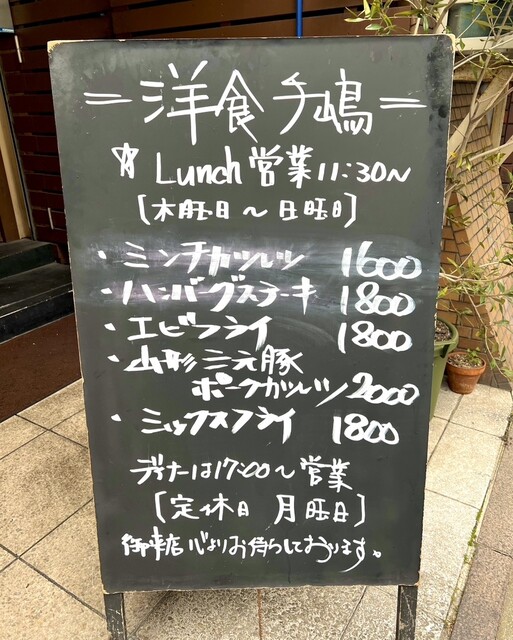 =洋食 千嶋=
☆ Lunch 営業 11:30~
[木曜日~日曜日]
・ミンチカツレツ 1600
・ハンバグステーキ 1800
・エビフライ 1800
・山形三元豚
ポークカツレツ 2000
・ミックスフライ 1800
ディナーは17:00~営業
[定休日 月曜日]
御来店心よりお待ちしております。